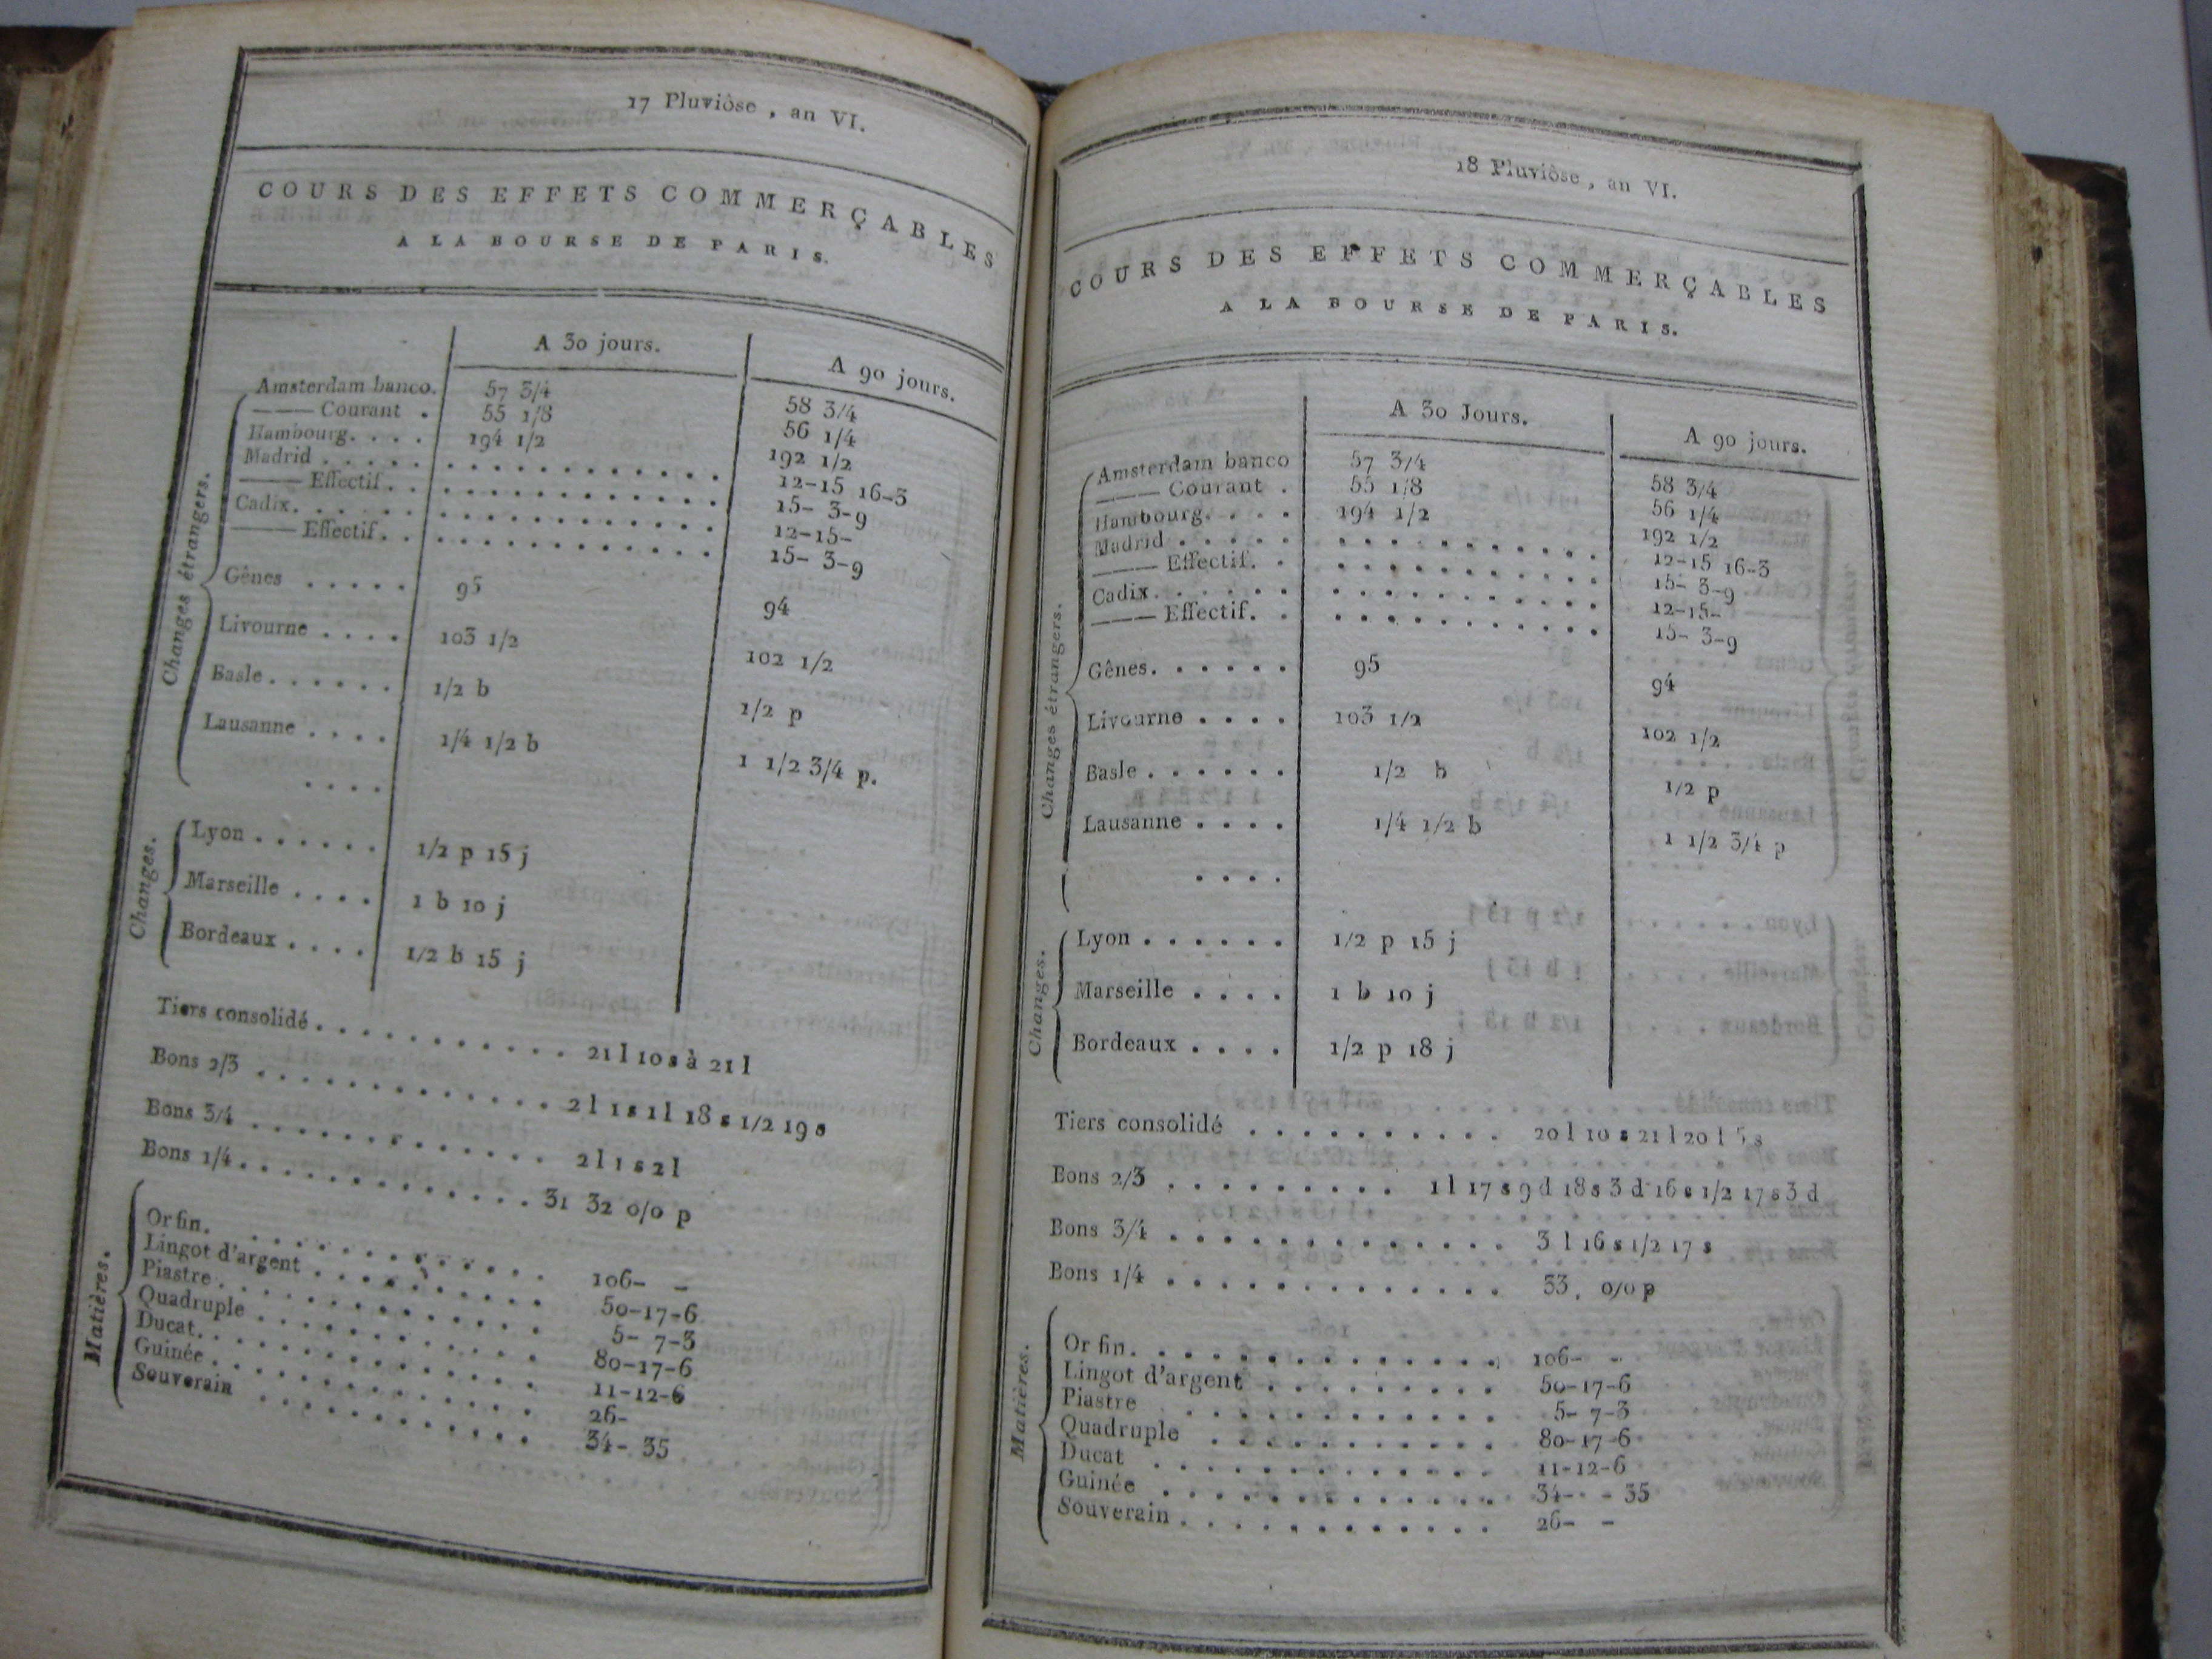 17 Pluviôse, an VI.
COURS DES EFFETS COMMERÇABLES
A LA BOURSE DE PARIS.
A 30 jours. A 90 jours.
Changes étrangers.
Amsterdam banco. 57 3/4 58 3/4
—— Courant . 55 1/8 56 1/4
Hambourg. . . . 194 1/2 192 1/2
Madrid . . . . . . . . . . . . . . . . 12-15 16-3
—— Effectif. . . . . . . . . . . . . . 15- 3-9
Cadix. . . . . . . . . . . . . . . . . 12-15-
—— Effectif. . . . . . . . . . . . . . 15- 3-9
Gênes . . . . . 95 94
Livourne . . . . 103 1/2 102 1/2
Basle . . . . . . 1/2 b 1/2 p
Lausanne . . . . 1/4 1/2 b 1 1/2 3/4 p.
. . . .
Changes.
Lyon . . . . . . 1/2 p 15 j
Marseille . . . . 1 b 10 j
Bordeaux . . . . 1/2 b 15 j
Tiers consolidé . . . . . . . . . . . 21 l 10 s à 21 l
Bons 2/3 . . . . . . . . . . . . . 2 l 1 s 1 l 18 s 1/2 19 s
Bons 3/4 . . . . . . . . . . . . . 2 l 1 s 2 l
Bons 1/4 . . . . . . . . . . . . . 31 32 0/0 p
Matières.
Or fin. . . . . . . . . . . . . . 106- -
Lingot d'argent . . . . . . . . . . 50-17-6
Piastre . . . . . . . . . . . . . 5- 7-3
Quadruple . . . . . . . . . . . . 80-17-6
Ducat. . . . . . . . . . . . . . 11-12-6
Guinée . . . . . . . . . . . . . 26-
Souverain . . . . . . . . . . . . 34- 35
18 Pluviôse, an VI.
COURS DES EFFETS COMMERÇABLES
A LA BOURSE DE PARIS.
A 30 Jours. A 90 jours.
Changes étrangers.
Amsterdam banco 57 3/4 58 3/4
—— Courant . 55 1/8 56 1/4
Hambourg. . . . 194 1/2 192 1/2
Madrid . . . . . . . . . . . . . . . . 12-15 16-3
—— Effectif. . . . . . . . . . . . . . 15- 3-9
Cadix. . . . . . . . . . . . . . . . . 12-15-
—— Effectif. . . . . . . . . . . . . . 15- 3-9
Gênes. . . . . . 95 94
Livourne . . . . 103 1/2 102 1/2
Basle . . . . . . 1/2 b 1/2 p
Lausanne . . . . 1/4 1/2 b 1 1/2 3/4 p
. . . .
Changes.
Lyon . . . . . . 1/2 p 15 j
Marseille . . . . 1 b 10 j
Bordeaux . . . . 1/2 p 18 j
Tiers consolidé . . . . . . . . . . 20 l 10 s 21 l 20 l 5 s
Bons 2/3 . . . . . . . . . . 1 l 17 s 9 d 18 s 3 d 16 s 1/2 17 s 3 d
Bons 3/4 . . . . . . . . . . . . . 3 l 16 s 1/2 17 s
Bons 1/4 . . . . . . . . . . . . . 33, 0/0 p
Matières.
Or fin. . . . . . . . . . . . . . 106- -
Lingot d'argent . . . . . . . . . 50-17-6
Piastre . . . . . . . . . . . . . 5- 7-3
Quadruple . . . . . . . . . . . 80-17-6
Ducat . . . . . . . . . . . . . 11-12-6
Guinée . . . . . . . . . . . . . 34- - 35
Souverain . . . . . . . . . . . . 26- -